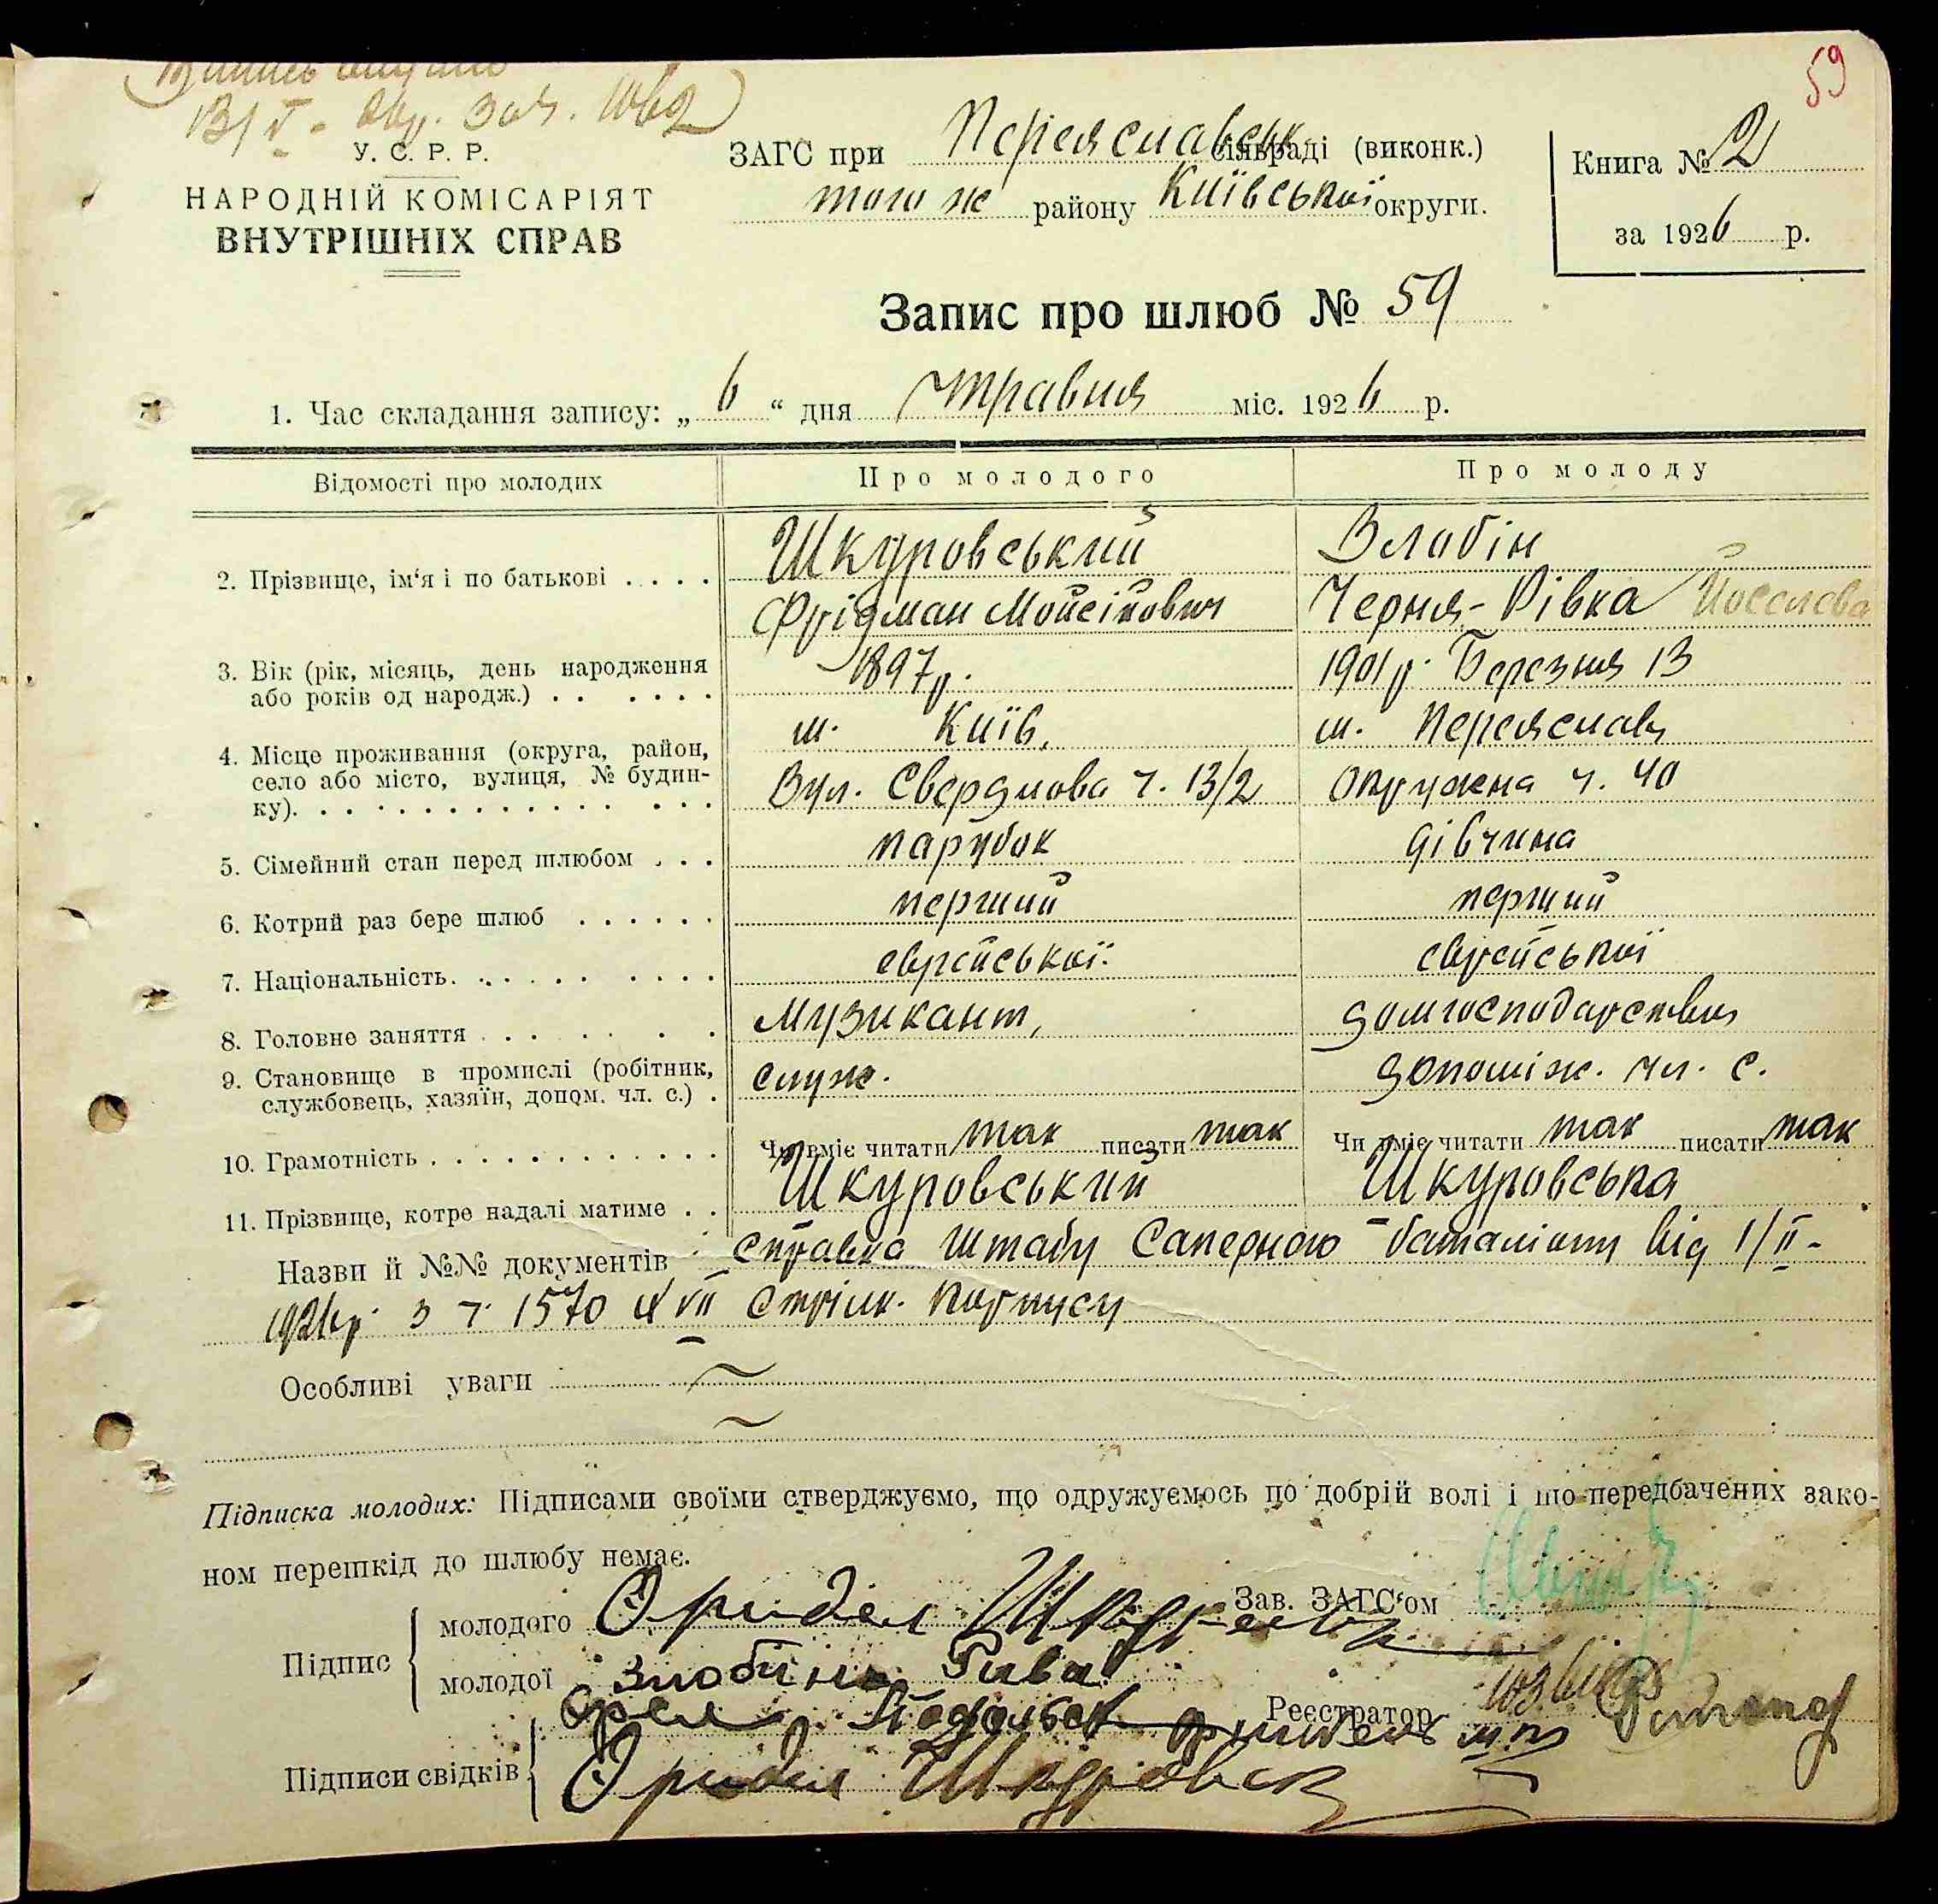 59
У. С. Р. Р.
НАРОДНІЙ КОМІСАРІЯТ
ВНУТРІШНІХ СПРАВ
ЗАГС при Переяславськ сільраді (виконк.)
того ж району Київської округи.
Книга № 2
за 1926 р.
Запис про шлюб № 59
1. Час складання запису: „ 6 “ дня травня міс. 1926 р.
Відомості про молодих Про молодого Про молоду
2. Прізвище, ім‘я і по батькові . . . .
Шкуровський
Фрідман Мойсійович
Злобін
Черня-Рівка Йоселева
3. Вік (рік, місяць, день народження
або років од народж.) . . . . . .
1897р.
1901р. Березня 13
4. Місце проживання (округа, район,
село або місто, вулиця, № будин-
ку). . . . . . . . . . . . . . . .
м. Київ,
Вул. Свердлова ч. 13/2
м. Переяслав
Окружна ч. 40
5. Сімейний стан перед шлюбом . . . парубок дівчина
6. Котрий раз бере шлюб . . . . . . перший перший
7. Національність. . . . . . . . . . єврейської. єврейської
8. Головне заняття . . . . . . . Музикант, домгосподарства
9. Становище в промислі (робітник,
службовець, хазяїн, допом. чл. с.) .
служ.
допоміж. чл. с.
10. Грамотність . . . . . . . . . . . . Чи вміє читати так писати так Чи вміє читати так писати так
11. Прізвище, котре надалі матиме . . Шкуровський Шкуровська
Назви й №№ документів справка штабу Саперного баталіону від 1/II-
1926р. з ч. 1570 XVII Стрілк. Корпусу
Особливі уваги
Підписка молодих: Підписами своїми стверджуємо, що одружуємось по добрій волі і що передбачених зако-
ном перешкід до шлюбу немає.
Підпис
молодого Фридел
Зав. ЗАГС‘ом
молодої Злобина Рива
Реєстратор
Підписи свідків
Фридел Шкуровск